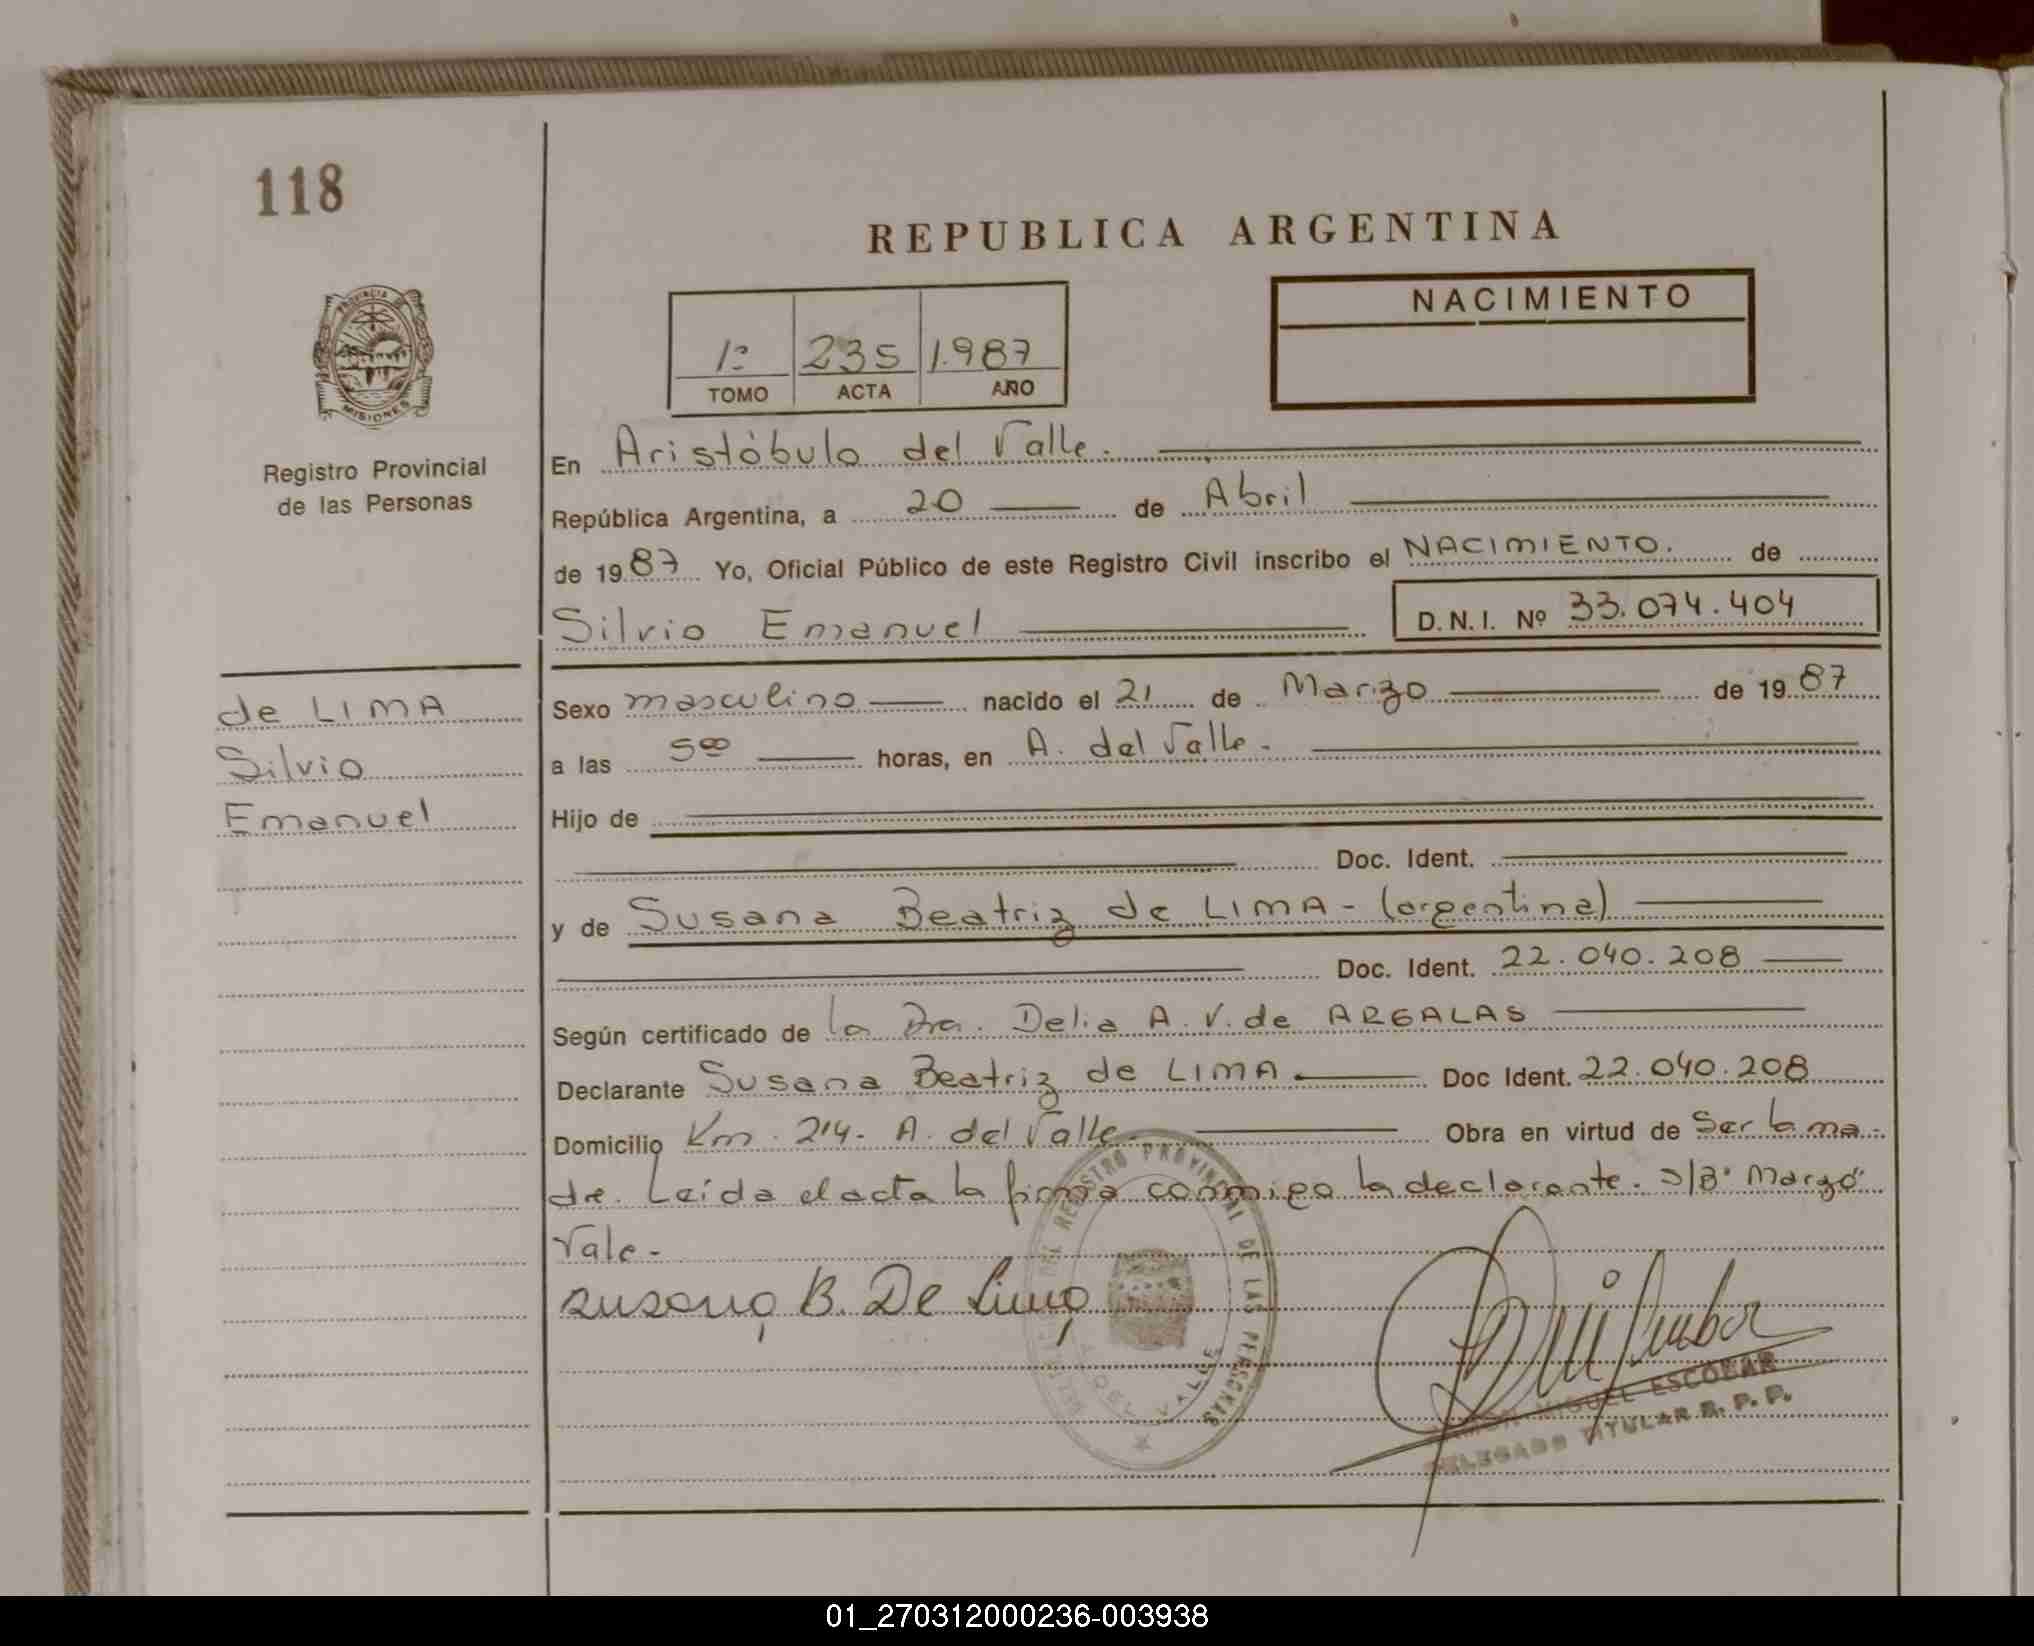 118
REPUBLICA ARGENTINA
PROVINCIA DE
MISIONES
Registro Provincial
de las Personas
1º 235 1.987
TOMO ACTA AÑO
NACIMIENTO
En Aristóbulo del Valle.
República Argentina, a 20 de Abril
de 1987 Yo, Oficial Público de este Registro Civil inscribo el NACIMIENTO. de
Silvio Emanuel D.N.I. Nº 33.074.404
de LIMA
Silvio
Emanuel
Sexo masculino nacido el 21 de Marzo de 1987
a las 5⁰⁰ horas, en A. del Valle.
Hijo de
Doc. Ident.
y de Susana Beatriz de LIMA - (argentina)
Doc. Ident. 22.040.208
Según certificado de la Dra. Delia A. V. de ARGALAS
Declarante Susana Beatriz de LIMA Doc Ident. 22.040.208
Domicilio Km. 214. A. del Valle. Obra en virtud de Ser la ma-
dre. Leída el acta la firma conmigo la declarante. S/B: "Marzo"
Vale.-
Susana B. De Lima
DEL REGISTRO PROVINCIAL DE LAS PERSONAS
A. DEL VALLE
MIGUEL ESCOBAR
DELEGADO TITULAR R. P. P.
01_270312000236-003938